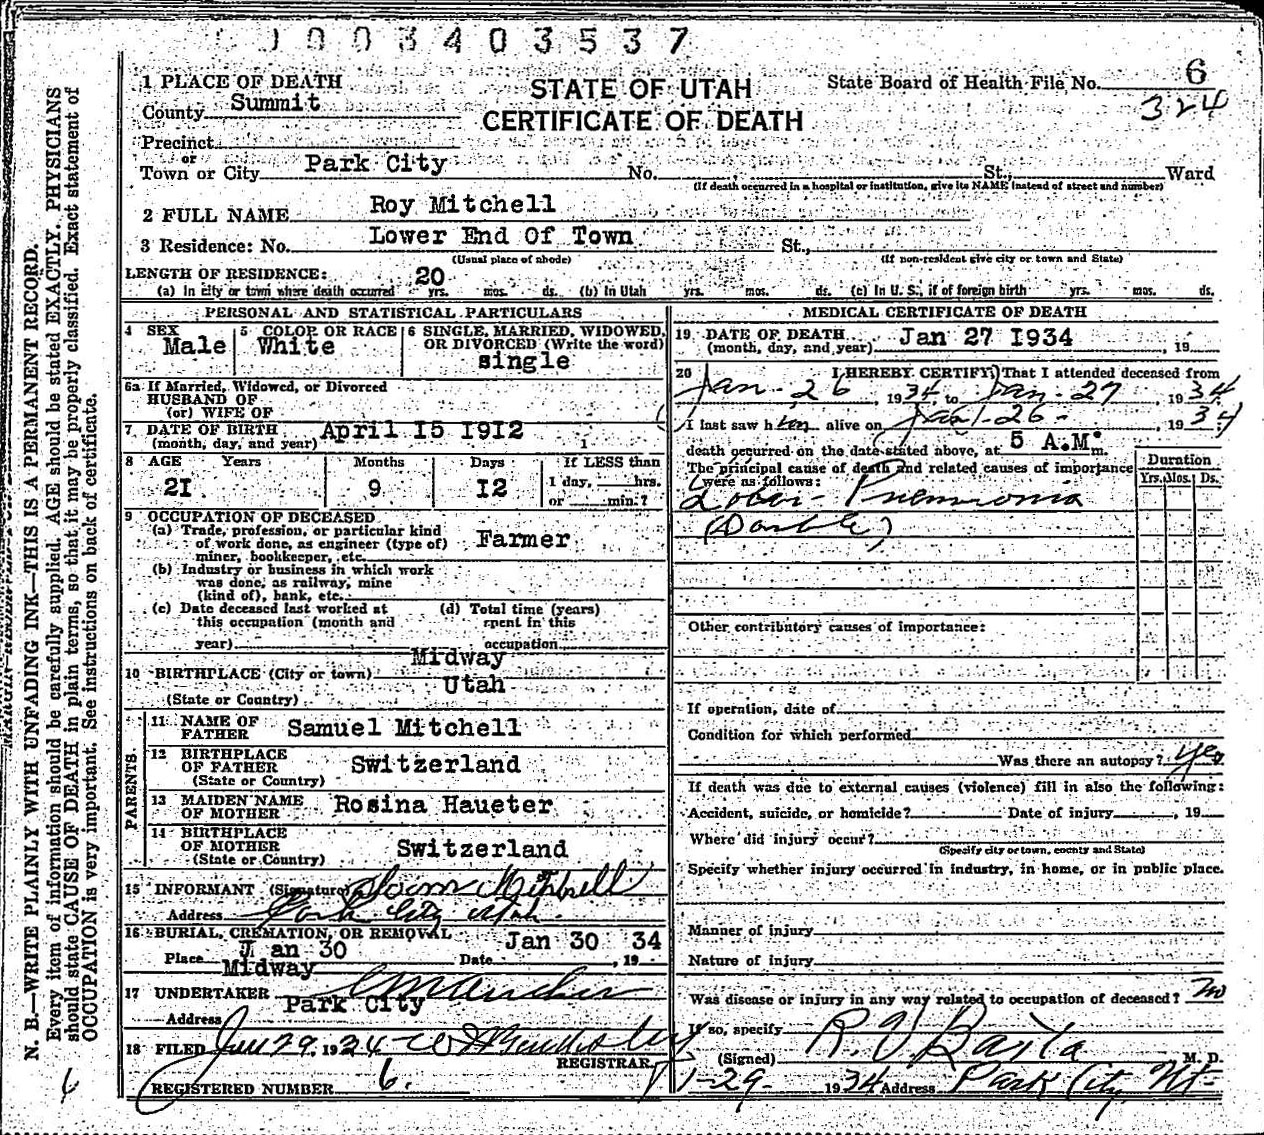 1003403537
1 PLACE OF DEATH
STATE OF UTAH
CERTIFICATE OF DEATH
State Board of Health File No. 6
324
County Summit
Precinct
or
Town or City Park City No. St., Ward
(If death occurred in a hospital or institution, give its NAME instead of street and number)
2 FULL NAME Roy Mitchell
3 Residence: No. Lower End Of Town St.,
(Usual place of abode) (If non-resident give city or town and State)
LENGTH OF RESIDENCE:
(a) In city or town where death occurred 20 yrs. mos. ds. (b) In Utah yrs. mos. ds. (c) In U. S., if of foreign birth yrs. mos. ds.
PERSONAL AND STATISTICAL PARTICULARS
4 SEX Male
5 COLOR OR RACE White
6 SINGLE, MARRIED, WIDOWED,
OR DIVORCED (Write the word)
single
6a If Married, Widowed, or Divorced
HUSBAND OF
(or) WIFE OF
7 DATE OF BIRTH
(month, day, and year) April I5 I9I2
8 AGE Years Months Days If LESS than
2I 9 I2 1 day, hrs.
or min.?
9 OCCUPATION OF DECEASED
(a) Trade, profession, or particular kind
of work done, as engineer (type of)
miner, bookkeeper, etc. Farmer
(b) Industry or business in which work
was done, as railway, mine
(kind of), bank, etc.
(c) Date deceased last worked at
this occupation (month and
year)
(d) Total time (years)
spent in this
occupation
10 BIRTHPLACE (City or town) Midway
(State or Country) Utah
PARENTS
11 NAME OF
FATHER Samuel Mitchell
12 BIRTHPLACE
OF FATHER
(State or Country) Switzerland
13 MAIDEN NAME
OF MOTHER Rosina Haueter
14 BIRTHPLACE
OF MOTHER
(State or Country) Switzerland
15 INFORMANT (Signature) Mitchell
Address Park City Utah
16 BURIAL, CREMATION, OR REMOVAL
J an 30
Place Midway Date Jan 30 34, 19
17 UNDERTAKER
Address Park City
18 FILED Jan 29, 1934
REGISTRAR
REGISTERED NUMBER 6.
MEDICAL CERTIFICATE OF DEATH
19 DATE OF DEATH
(month, day, and year) Jan 27 I934, 19
20 I HEREBY CERTIFY, That I attended deceased from
Jan. 26, 1934, to Jan. 27 1934
I last saw him alive on Jan. 26 1934
death occurred on the date stated above, at 5 A.M. m.
The principal cause of death and related causes of importance
were as follows:
Lobar Pnemonia
(Double)
Duration
Yrs. Mos. Ds.
Other contributory causes of importance:
If operation, date of
Condition for which performed
Was there an autopsy? yes
If death was due to external causes (violence) fill in also the following:
Accident, suicide, or homicide? Date of injury, 19
Where did injury occur?
(Specify city or town, county and State)
Specify whether injury occurred in industry, in home, or in public place.
Manner of injury
Nature of injury
Was disease or injury in any way related to occupation of deceased? No
If so, specify
(Signed) R. V. M. D.
1-29- 1934 Address Park City, Ut-
N. B.—WRITE PLAINLY WITH UNFADING INK—THIS IS A PERMANENT RECORD.
Every item of information should be carefully supplied. AGE should be stated EXACTLY. PHYSICIANS
should state CAUSE OF DEATH in plain terms, so that it may be properly classified. Exact statement of
OCCUPATION is very important. See instructions on back of certificate.
6